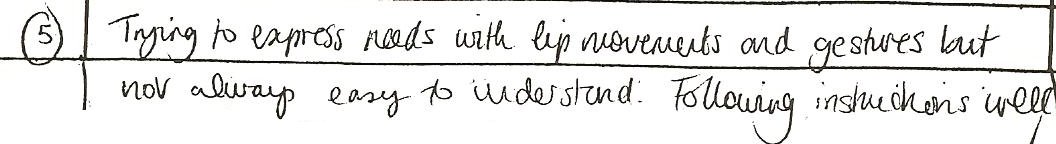 5 Trying to express needs with lip movements and gestures but
not always easy to understand. Following instructions well